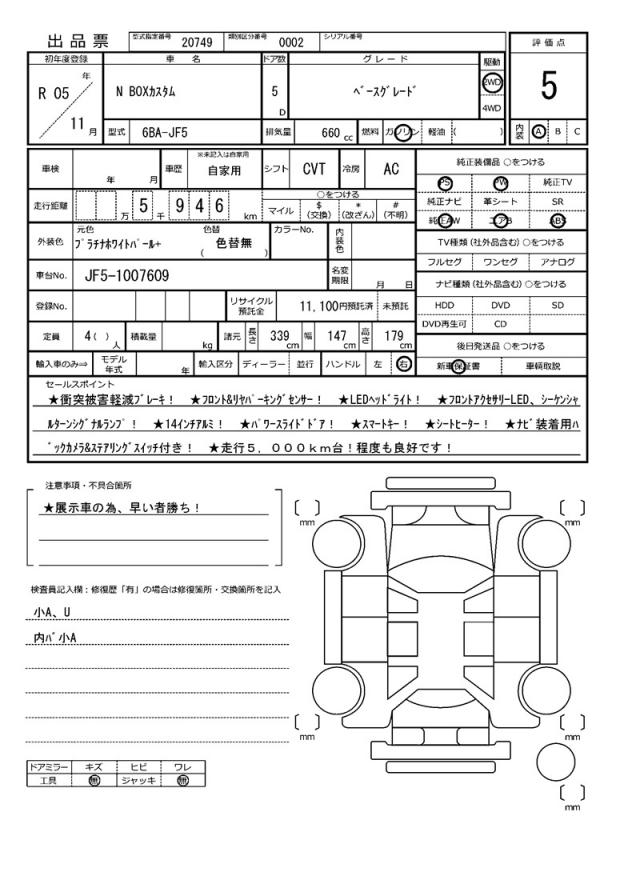 出品票 型式指定番号 20749 類別区分番号 0002 シリアル番号
評価点
5
初年度登録 車名 ドア数 グレード 駆動
R 05 年 11 月 N BOXカスタム 5 D ベースグレード 2WD 4WD
型式 6BA-JF5 排気量 660 cc 燃料 ガソリン 軽油 ( ) 内装 A B C
車検 年 月 車歴 ※未記入は自家用 自家用 シフト CVT 冷房 AC
走行距離 万 5 千 9 4 6 km ○をつける マイル $(交換) *(改ざん) #(不明)
外装色 元色 プラチナホワイトパール+ 色替 ( 色替無 ) カラーNo. 内装色
車台No. JF5-1007609 名変期限 月 日
登録No. リサイクル預託金 11,100円預託済 未預託
定員 4( ) 人 積載量 kg 諸元 長さ 339 cm 幅 147 cm 高さ 179 cm
輸入車のみ⇒ モデル年式 年 輸入区分 ディーラー 並行 ハンドル 左 右
純正装備品 ○をつける
PS PW 純正TV
純正ナビ 革シート SR
純正AW エアB ABS
TV種類(社外品含む) ○をつける
フルセグ ワンセグ アナログ
ナビ種類(社外品含む) ○をつける
HDD DVD SD
DVD再生可 CD
後日発送品 ○をつける
新車保証書 車輌取説
セールスポイント
★衝突被害軽減ブレーキ! ★フロント&リヤパーキングセンサー! ★LEDヘッドライト! ★フロントアクセサリーLED、シーケンシャ
ルターンシグナルランプ! ★14インチアルミ! ★パワースライドドア! ★スマートキー! ★シートヒーター! ★ナビ装着用バ
ックカメラ&ステアリングスイッチ付き! ★走行5,000km台!程度も良好です!
注意事項・不具合箇所
★展示車の為、早い者勝ち!
検査員記入欄:修復歴「有」の場合は修復箇所・交換箇所を記入
小A、U
内バ小A
ドアミラー キズ ヒビ ワレ
工具 無 ジャッキ 無
[ ] mm
[ ] mm
[ ] mm
[ ] mm
[ ] mm